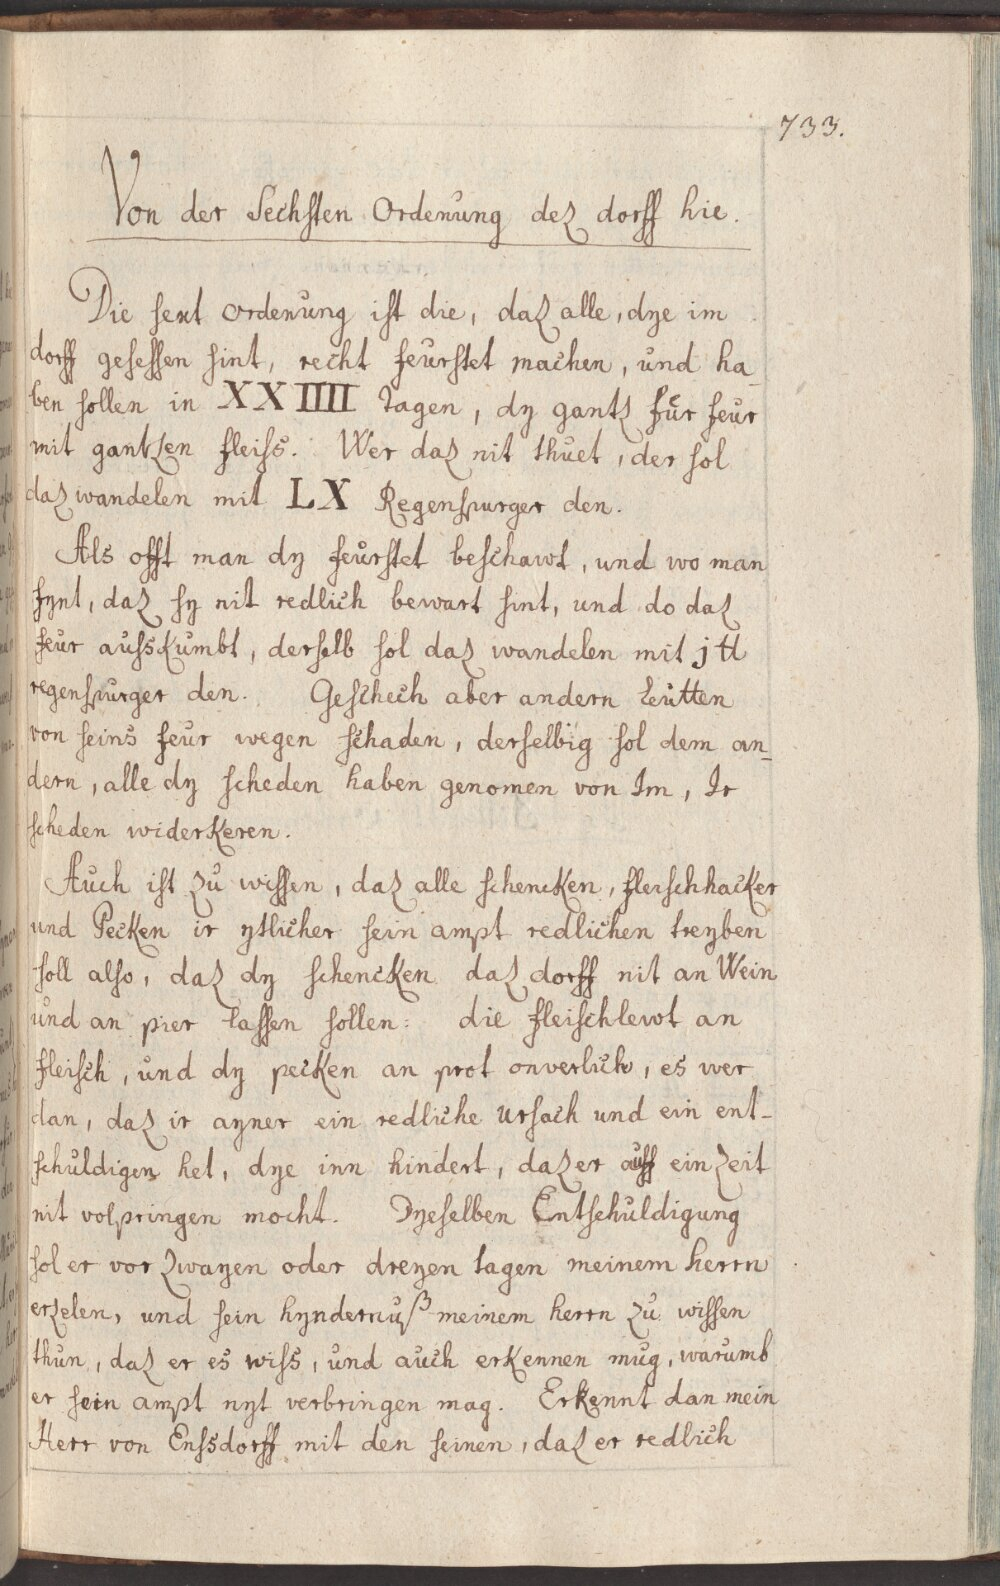 733.
Von der Sechsten Ordenung dez dorff hie.
Die sext ordenung ist die, daz alle, dye im
dorff gesessen sint, recht feurstet machen, und ha_
ben sollen in XXIIII tagen, dy gantz für feur
mit gantzen fleiss. Wer daz nit thuet, der sol
daz wandelen mit LX Regenspurger den.
Als offt man dy feurstet beschawt, und wo man
fynt, daz sy nit redlich bewart sint, und do daz
feur ausskumbt, derselb sol daz wandelen mit j tl
regenspurger den. Geschech aber andern Leutten
von seins feur wegen schaden, derselbig sol dem an_
dern, alle dy scheden haben genomen von Im, Ir
scheden widerkeren.
Auch ist zu wissen, daz alle schencken, fleischhacker
und Pecken ir ytlicher sein ampt redlichen treyben
soll also, daz dy schencken daz dorff nit an Wein
und an pier lassen sollen: die fleischlewt an
fleisch, und dy pecken an prot onverlich, es wer
dan, daz ir ayner ein redliche ursach und ein ent_
schuldigen het, dye inn hindert, daz er auff ein zeit
nit volpringen mocht. Dyeselben Entschuldigung
sol er vor zwayen oder dreyen tagen meinem herrn
erzelen, und sein hyndernuß meinem herrn zu wissen
thun, daz er es wiss, und auch erkennen mug, warumb
er sein ampt nyt verbringen mag. Erkennt dan mein
Herr von Enssdorff mit den seinen, daz er redlich